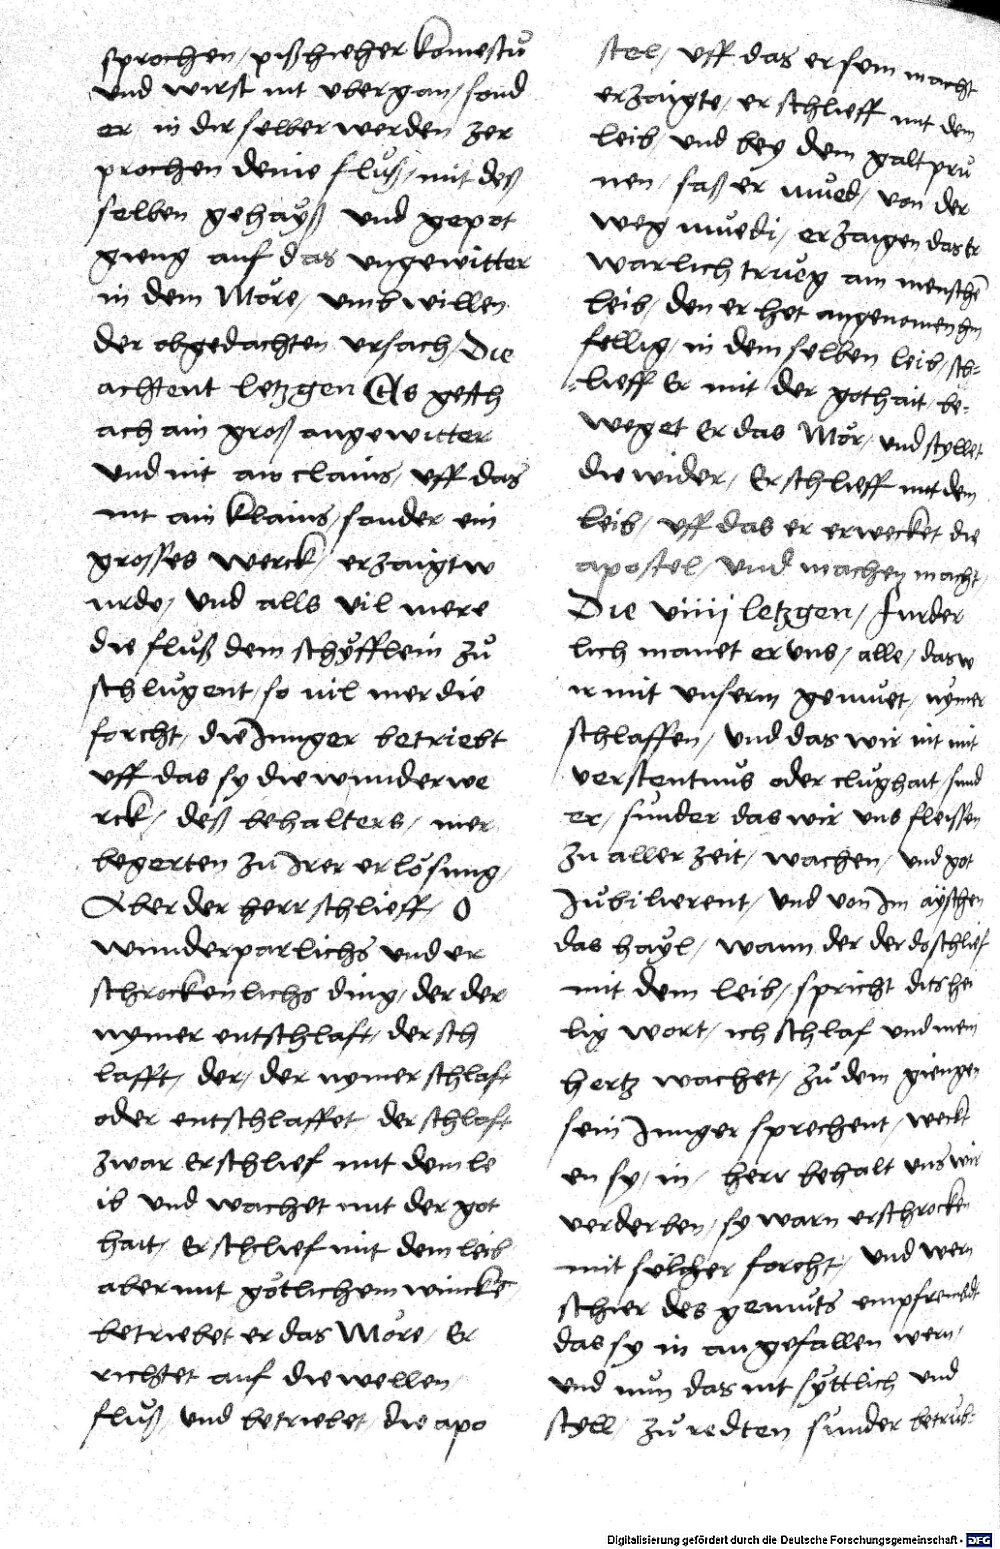 sprochen / pißhieher komestu
und wirst nit vbergan / sond
er in dir selber werden zer
prochen deine fluß / mit deß
selben gehayß und gepot
gieng auf das ungewitter
in dem Möre / umb willen
der obgedachten ursach / Die
achtent letzgen Es gesch
ach ain groß angewitter
und nit ain clains / uff das
nit ain klains / sonder ein
grosses werck / erzaigt w
urde / und alls vil mere
die fluß dem schyfflein zů
schlůgent / so vil mer die
forcht / die Junger betriebt
uff das sy die wunderwe
rck / deß behalters / mer
begerten zů Irer erlösung /
Aber der herr schlieff / O
wunderparlichs und er
schrockenlichs ding / der der
nymer entschlaft / der sch
lafft / der / der nymer schlaft
oder entschlaffet der schlaft
zwar Er schlief mit dem le
ib und wachet mit der got
hait / Er schlief mit dem leib
aber mit götlichem wincke
betriebet er das Möre / Er
richtet auf die wellen /
fluß / und betriebet / die apo
stel / uff das er sein macht
erzaigte / er schlieff mit dem
leib / und bey dem galtpru
nen / saß er mued / von der
weg muedi / erzaigen das er
warlich trueg ain menschen
leib / den er het angenomen hin
fellig / in dem selben leib / sch=
lieff Er mit der gothait / be=
weget Er das Mör / und styllet
die wider / Er schlieff mit dem
leib / uff das er erwecket die
apostel / und machen macht /
Die viiij letzgen / Furder
lich manet er uns / alle / das w
ir mit unserm gemuet / nymer
schlaffen / und das wir nit mit
verstentnus oder clughait sund
er / sunder das wir uns fleissen
zu aller zeit / wachen / und got
Jubilierent / und von Im äyschen
das hayl / wann der der do schlief
mit dem leib / spricht ditz hei
lig wort / ich schlaf und mein
hertz wachet / zů dem giengen
sein Junger sprechent / weckt
en sy / in / herr behalt uns wir
verderben / sy warn erschrocken
mit sölcher forcht / und wern
schier des gemuts empfremdt
das sy in angefallen wern /
und nun das nit syttlich und
styll / zů redten sunder betrub=
Digitalisierung gefördert durch die Deutsche Forschungsgemeinschaft - DFG